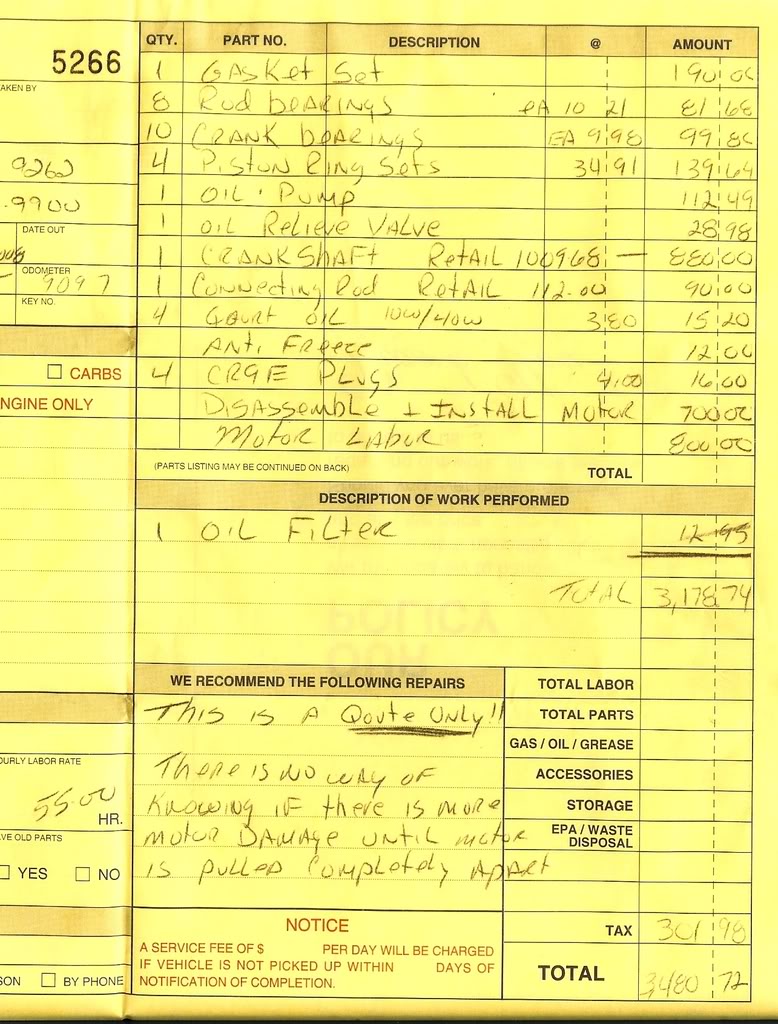 QTY. PART NO. DESCRIPTION @ AMOUNT
5266
1 GASKET Set 190.00
AKEN BY
8 Rod bearings eA 10 21 81 68
10 CRANK bearings EA 9.98 99 80
9262
4 Piston Ring Sets 34 91 139 64
.9900
1 OIL Pump 112 49
DATE OUT
1 OIL Relieve VALVE 28 98
1 CRANKShaft RetAIL 100968 — 880.00
ODOMETER
9097
1 Connecting Rod RetAIL 112.00 90.00
KEY NO.
4 Quart OIL 10w/40w 3.80 15 20
Anti Freeze 12 00
CARBS
4 CR9E PLUGS 4.00 16.00
NGINE ONLY
DISASSemble + INSTALL MOTOR 700 00
Motor LABOR 800.00
(PARTS LISTING MAY BE CONTINUED ON BACK) TOTAL
DESCRIPTION OF WORK PERFORMED
1 OIL FILter 12 95
TOTAL 3,178 74
WE RECOMMEND THE FOLLOWING REPAIRS
TOTAL LABOR
This is A Qoute Only!!
TOTAL PARTS
GAS / OIL / GREASE
OURLY LABOR RATE
There is no way of
ACCESSORIES
55.00
HR.
Knowing if there is more
STORAGE
AVE OLD PARTS
motor DAMAGE until motor
EPA / WASTE
DISPOSAL
YES NO
is pulled Completely Apart
NOTICE
A SERVICE FEE OF $ PER DAY WILL BE CHARGED
IF VEHICLE IS NOT PICKED UP WITHIN DAYS OF
NOTIFICATION OF COMPLETION.
TAX 301 98
SON BY PHONE
TOTAL 3,480 72